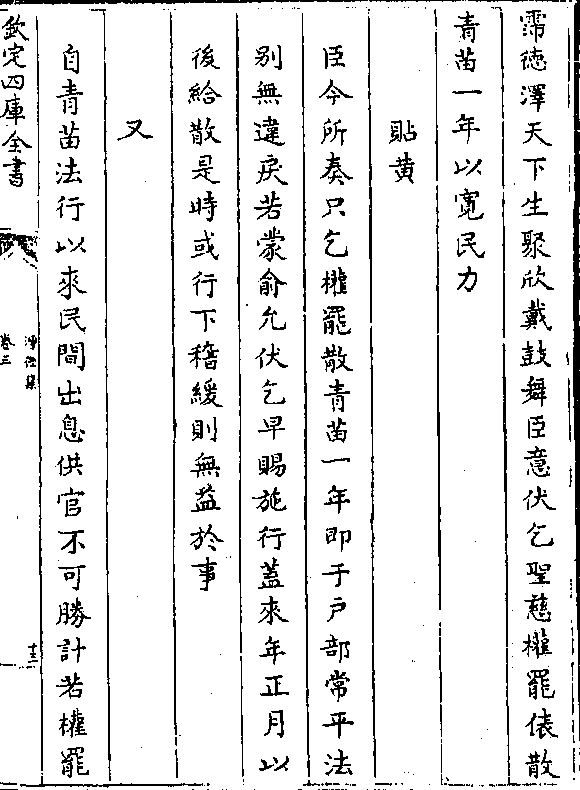 霈德澤天下生聚欣戴鼓舞臣意伏乞聖慈權罷俵散
青苗一年以寛民力
貼黄
臣今所奏只乞權罷散青苗一年即于户部常平法
别無違戾若蒙俞允伏乞早賜施行蓋來年正月以
後給散是時或行下稽緩則無益於事
又
自青苗法行以來民間出息供官不可勝計若權罷
欽定四庫全書
淨德集
卷三
十三